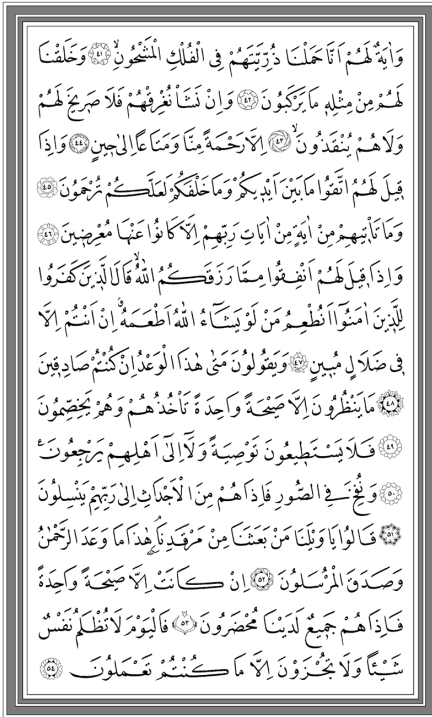 وَاٰيَةٌ لَهُمْ اَنَّا حَمَلْنَا ذُرِّيَّتَهُمْ فِى الْفُلْكِ الْمَشْحُونِۙ ﴿٤١﴾ وَخَلَقْنَا
لَهُمْ مِنْ مِثْلِه۪ مَا يَرْكَبُونَ ﴿٤٢﴾ وَاِنْ نَشَأْ نُغْرِقْهُمْ فَلَا صَر۪يخَ لَهُمْ
وَلَا هُمْ يُنْقَذُونَۙ ﴿٤٣﴾ اِلَّا رَحْمَةً مِنَّا وَمَتَاعاً اِلٰى ح۪ينٍ ﴿٤٤﴾ وَاِذَا
ق۪يلَ لَهُمُ اتَّقُوا مَا بَيْنَ اَيْد۪يكُمْ وَمَا خَلْفَكُمْ لَعَلَّكُمْ تُرْحَمُونَ ﴿٤٥﴾
وَمَا تَأْت۪يهِمْ مِنْ اٰيَةٍ مِنْ اٰيَاتِ رَبِّهِمْ اِلَّا كَانُوا عَنْهَا مُعْرِض۪ينَ ﴿٤٦﴾
وَاِذَا ق۪يلَ لَهُمْ اَنْفِقُوا مِمَّا رَزَقَكُمُ اللّٰهُۙ قَالَ الَّذ۪ينَ كَفَرُوا
لِلَّذ۪ينَ اٰمَنُٓوا اَنُطْعِمُ مَنْ لَوْ يَشَٓاءُ اللّٰهُ اَطْعَمَهُۗ اِنْ اَنْتُمْ اِلَّا
ف۪ى ضَلَالٍ مُب۪ينٍ ﴿٤٧﴾ وَيَقُولُونَ مَتٰى هٰذَا الْوَعْدُ اِنْ كُنْتُمْ صَادِق۪ينَ
﴿٤٨﴾ مَا يَنْظُرُونَ اِلَّا صَيْحَةً وَاحِدَةً تَأْخُذُهُمْ وَهُمْ يَخِصِّمُونَ
﴿٤٩﴾ فَلَا يَسْتَط۪يعُونَ تَوْصِيَةً وَلَٓا اِلٰٓى اَهْلِهِمْ يَرْجِعُونَ۟
﴿٥٠﴾ وَنُفِخَ فِى الصُّورِ فَاِذَا هُمْ مِنَ الْاَجْدَاثِ اِلٰى رَبِّهِمْ يَنْسِلُونَ
﴿٥١﴾ قَالُوا يَا وَيْلَنَا مَنْ بَعَثَنَا مِنْ مَرْقَدِنَاۢ هٰذَا مَا وَعَدَ الرَّحْمٰنُ
وَصَدَقَ الْمُرْسَلُونَ ﴿٥٢﴾ اِنْ كَانَتْ اِلَّا صَيْحَةً وَاحِدَةً
فَاِذَا هُمْ جَم۪يعٌ لَدَيْنَا مُحْضَرُونَ ﴿٥٣﴾ فَالْيَوْمَ لَا تُظْلَمُ نَفْسٌ
شَيْـٔاً وَلَا تُجْزَوْنَ اِلَّا مَا كُنْتُمْ تَعْمَلُونَ ﴿٥٤﴾